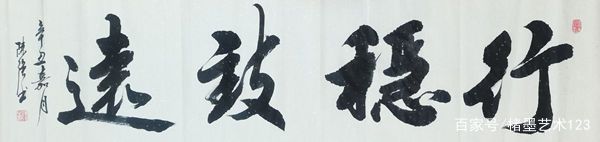 行稳致远
辛丑嘉月
百家号/楮墨艺术123